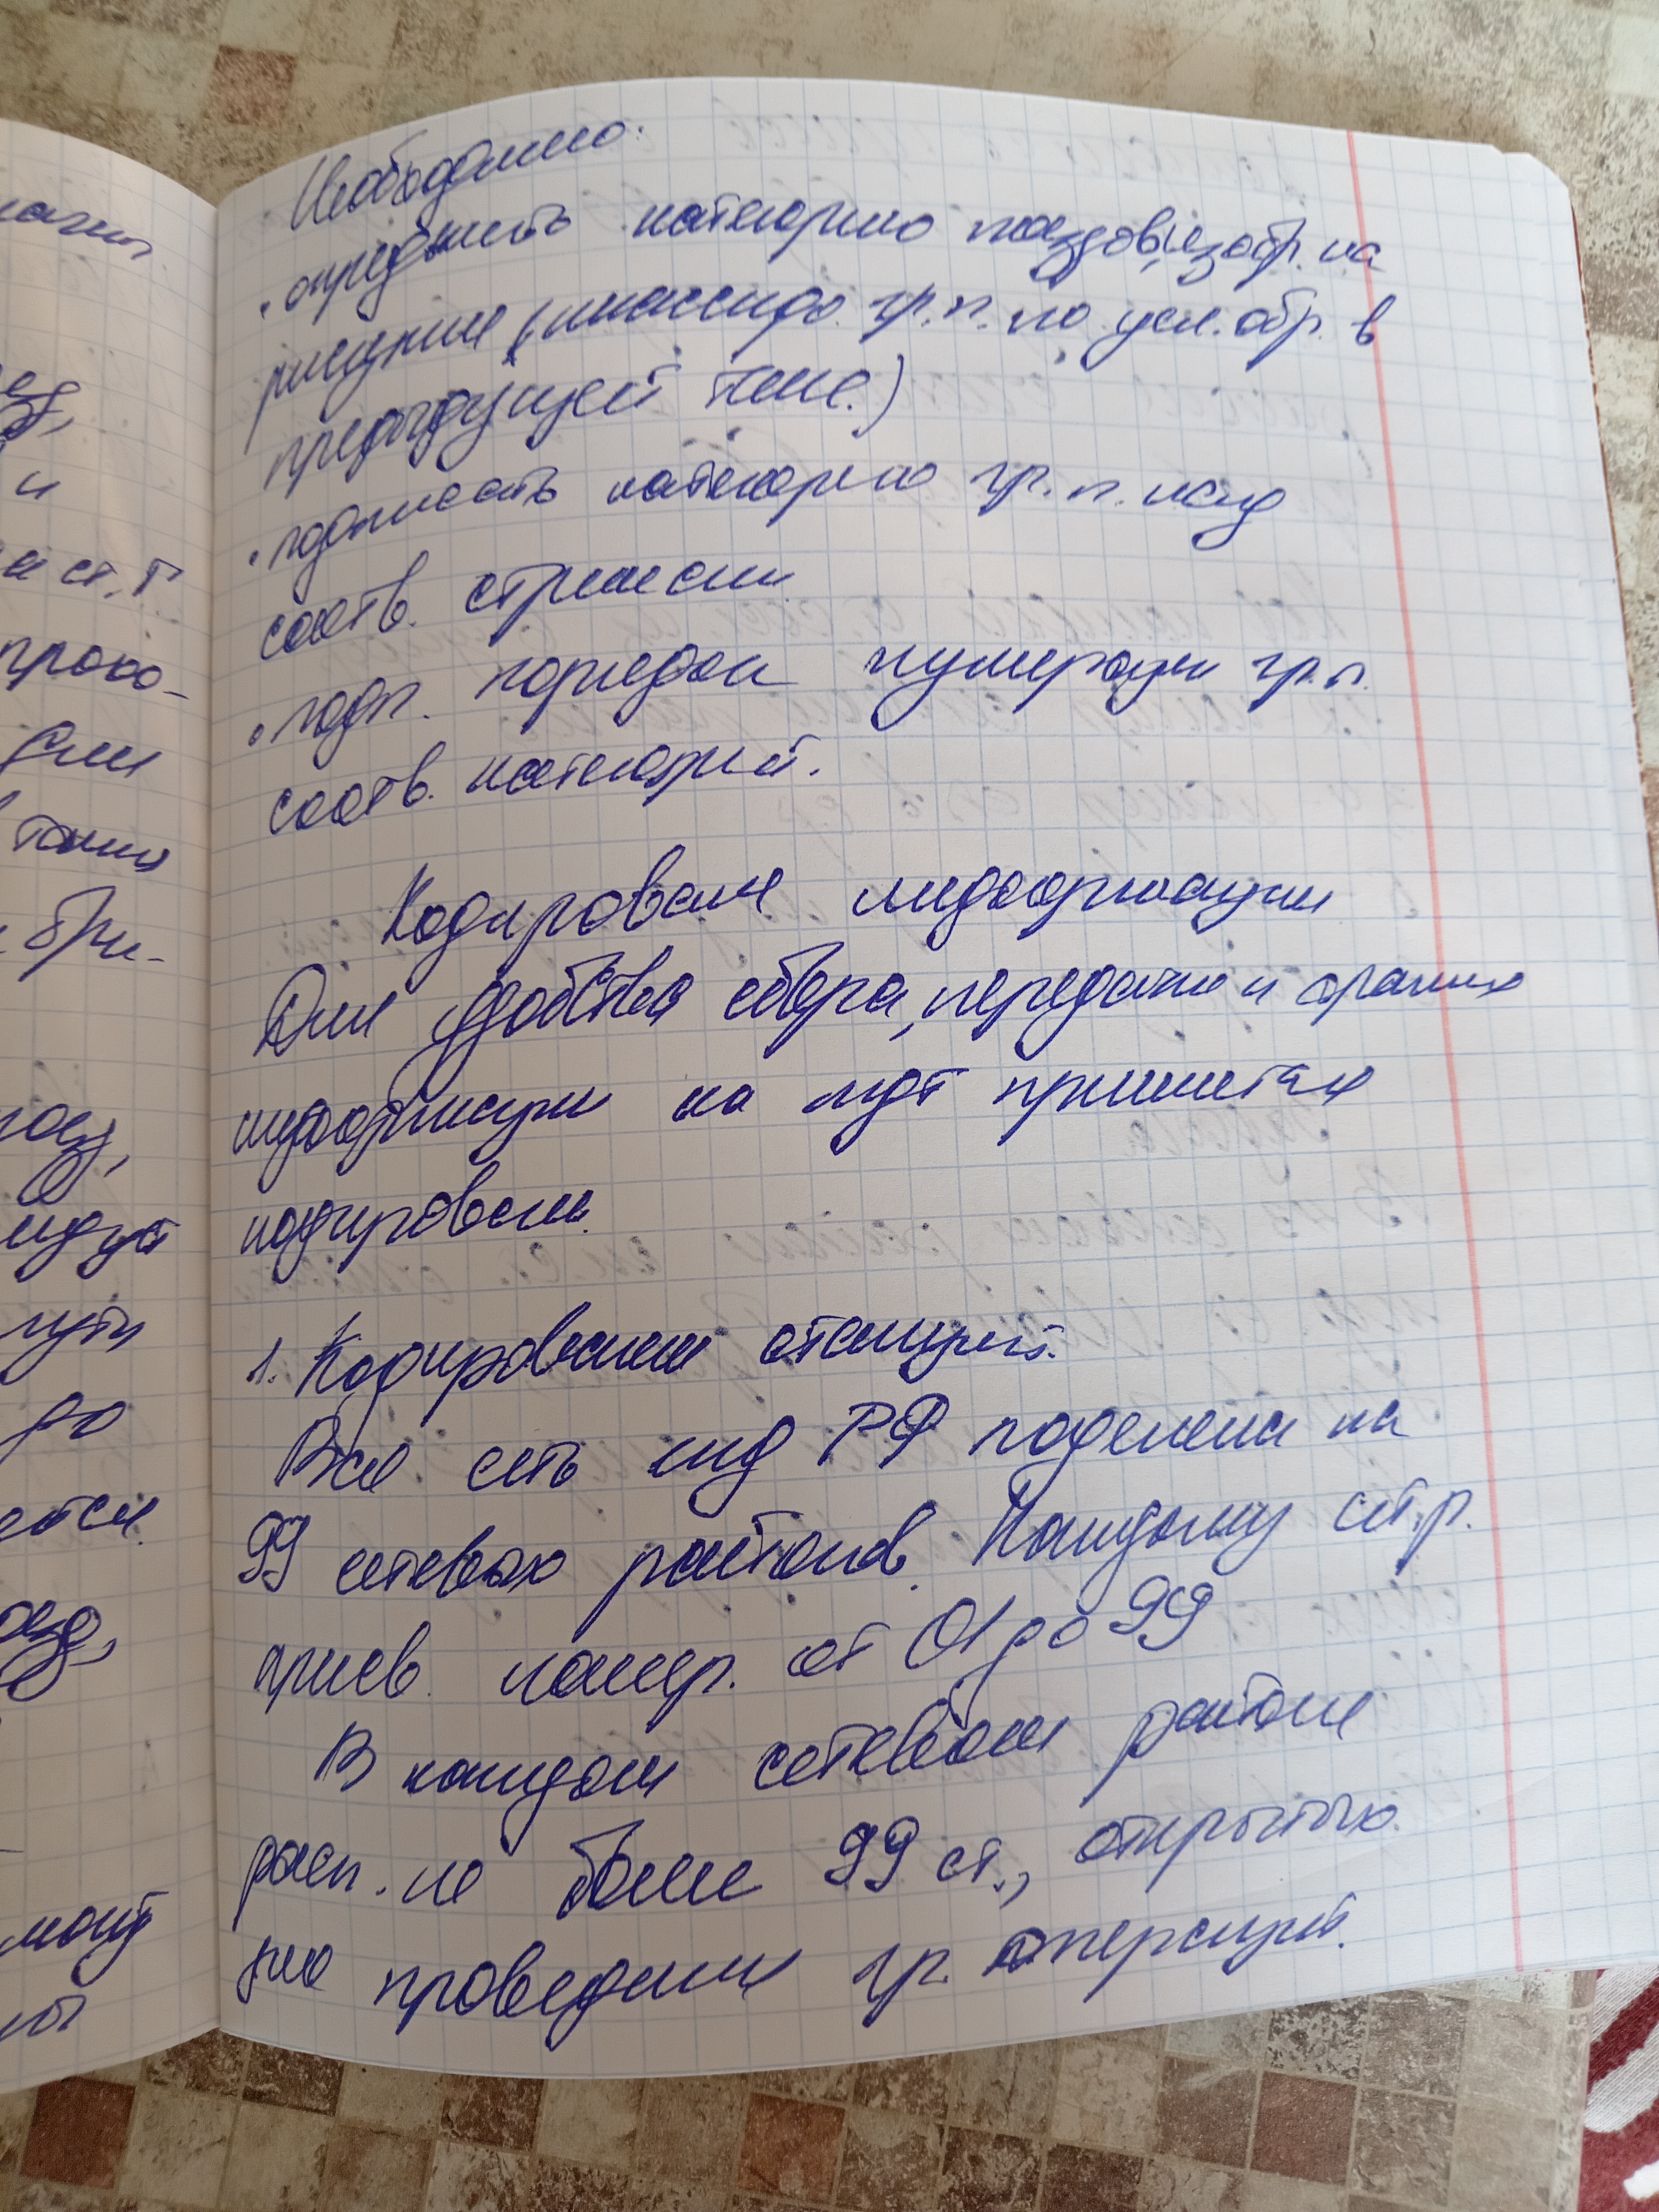 Необходимо:
• определить категорию поездов, изобр. на
рисунке (классиф. гр. п. по усл. обр. в
предыдущей теме.)
• подписать категорию гр. п. над
соотв. стрелками.
• подп. порядок нумерации гр. п.
соотв. категорий.
Кодирование информации
Для удобства сбора, передачи и хранения
информации на жд т применяется
кодирование.
1. Кодирование станций.
Вся сеть жд РФ поделена на
99 сетевых районов. Каждому сет. р.
присв. номер. от 01 до 99
В каждом сетевом районе
расп. не более 99 ст., открытых
для проведения гр. операций.
и
а ст. Г
прохо-
для
в таких
бри-
поезд,
идут
пути
до
ется.